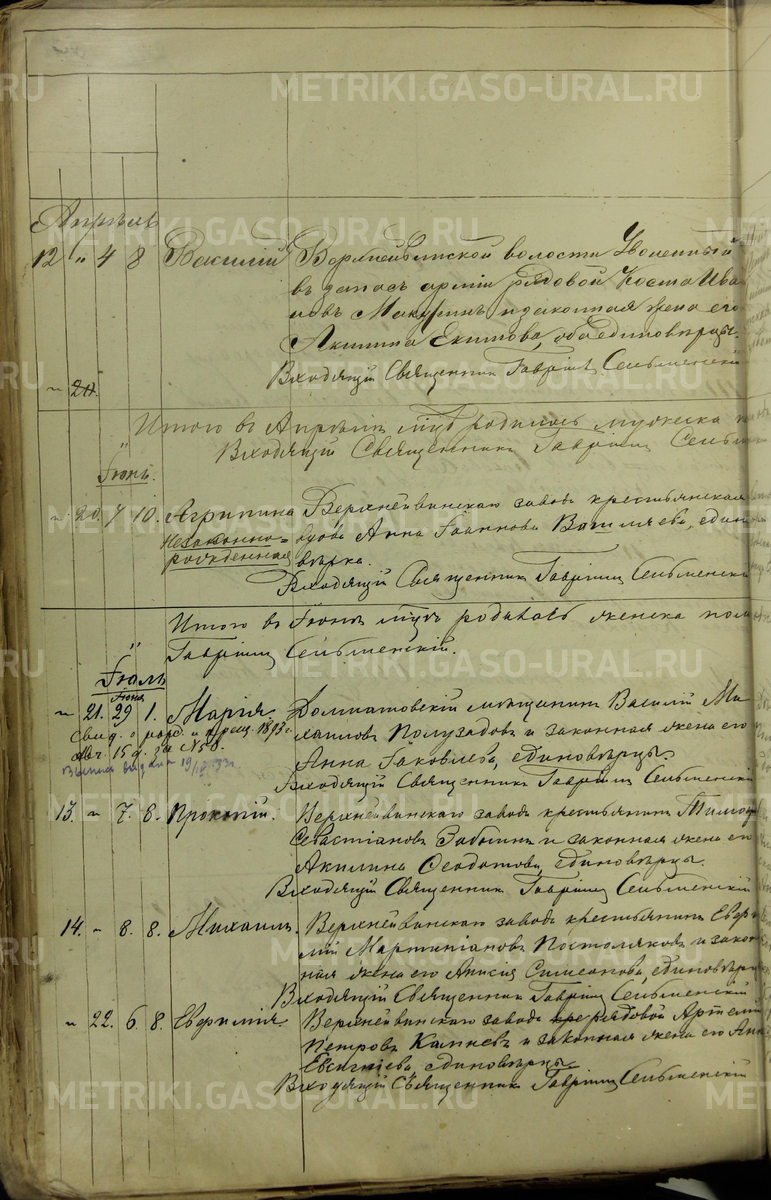 METRIKI.GASO-URAL.RU
Апрѣль
12 " 4 8 Василій Верхнейвинской волости Уволенный
въ запасъ арміи рядовой Коста Ива
новъ Макаринъ и законная жена его
Акилина Екимова, оба единовѣрцы.
Входящій Священникъ Гавріилъ Сельменскій
" 20.
Итого въ Апрѣлѣ родилось мужеска
Входящій Священникъ Гавріилъ Сельменскій
Іюнь.
" 20. 7 10. Агрипина Верхнейвинскаго завода крестьянская
Незаконно- вдова Анна Іоаннова Васильева, едино
рожденная вѣрка.
Входящій Священникъ Гавріилъ Сельменскій
Итого въ Іюнѣ родилось женска пола
Гавріилъ Сельменскій.
Іюль
Іюня
" 21. 29 1. Марія Долматовскій мѣщанинъ Василій Ми
Свид. о рожд. и крещ. 1893 г. хаиловъ Полузадовъ и законная жена его
Авг. 15 д. за № 50. Анна Іаковлева, единовѣрцы
Входящій Священникъ Гавріилъ Сельменскій
13. " 7. 8. Прокопій. Верхнейвинскаго завода крестьянинъ
Севастіановъ и законная жена его
Акилина Ѳеодотова, единовѣрцы.
Входящій Священникъ Гавріилъ Сельменскій
14. " 8. 8. Михаилъ. Верхнейвинскаго завода крестьянинъ
Мартиніановъ Постоляковъ и закон
ная жена его Анисія Симеонова, единовѣрцы
Входящій Священникъ Гавріилъ Сельменскій
" 22. 6. 8. Евфимія. Верхнейвинскаго завода рядовой Артемій
Петровъ и законная жена его Анна
Евсигніева, единовѣрцы
Входящій Священникъ Гавріилъ Сельменскій